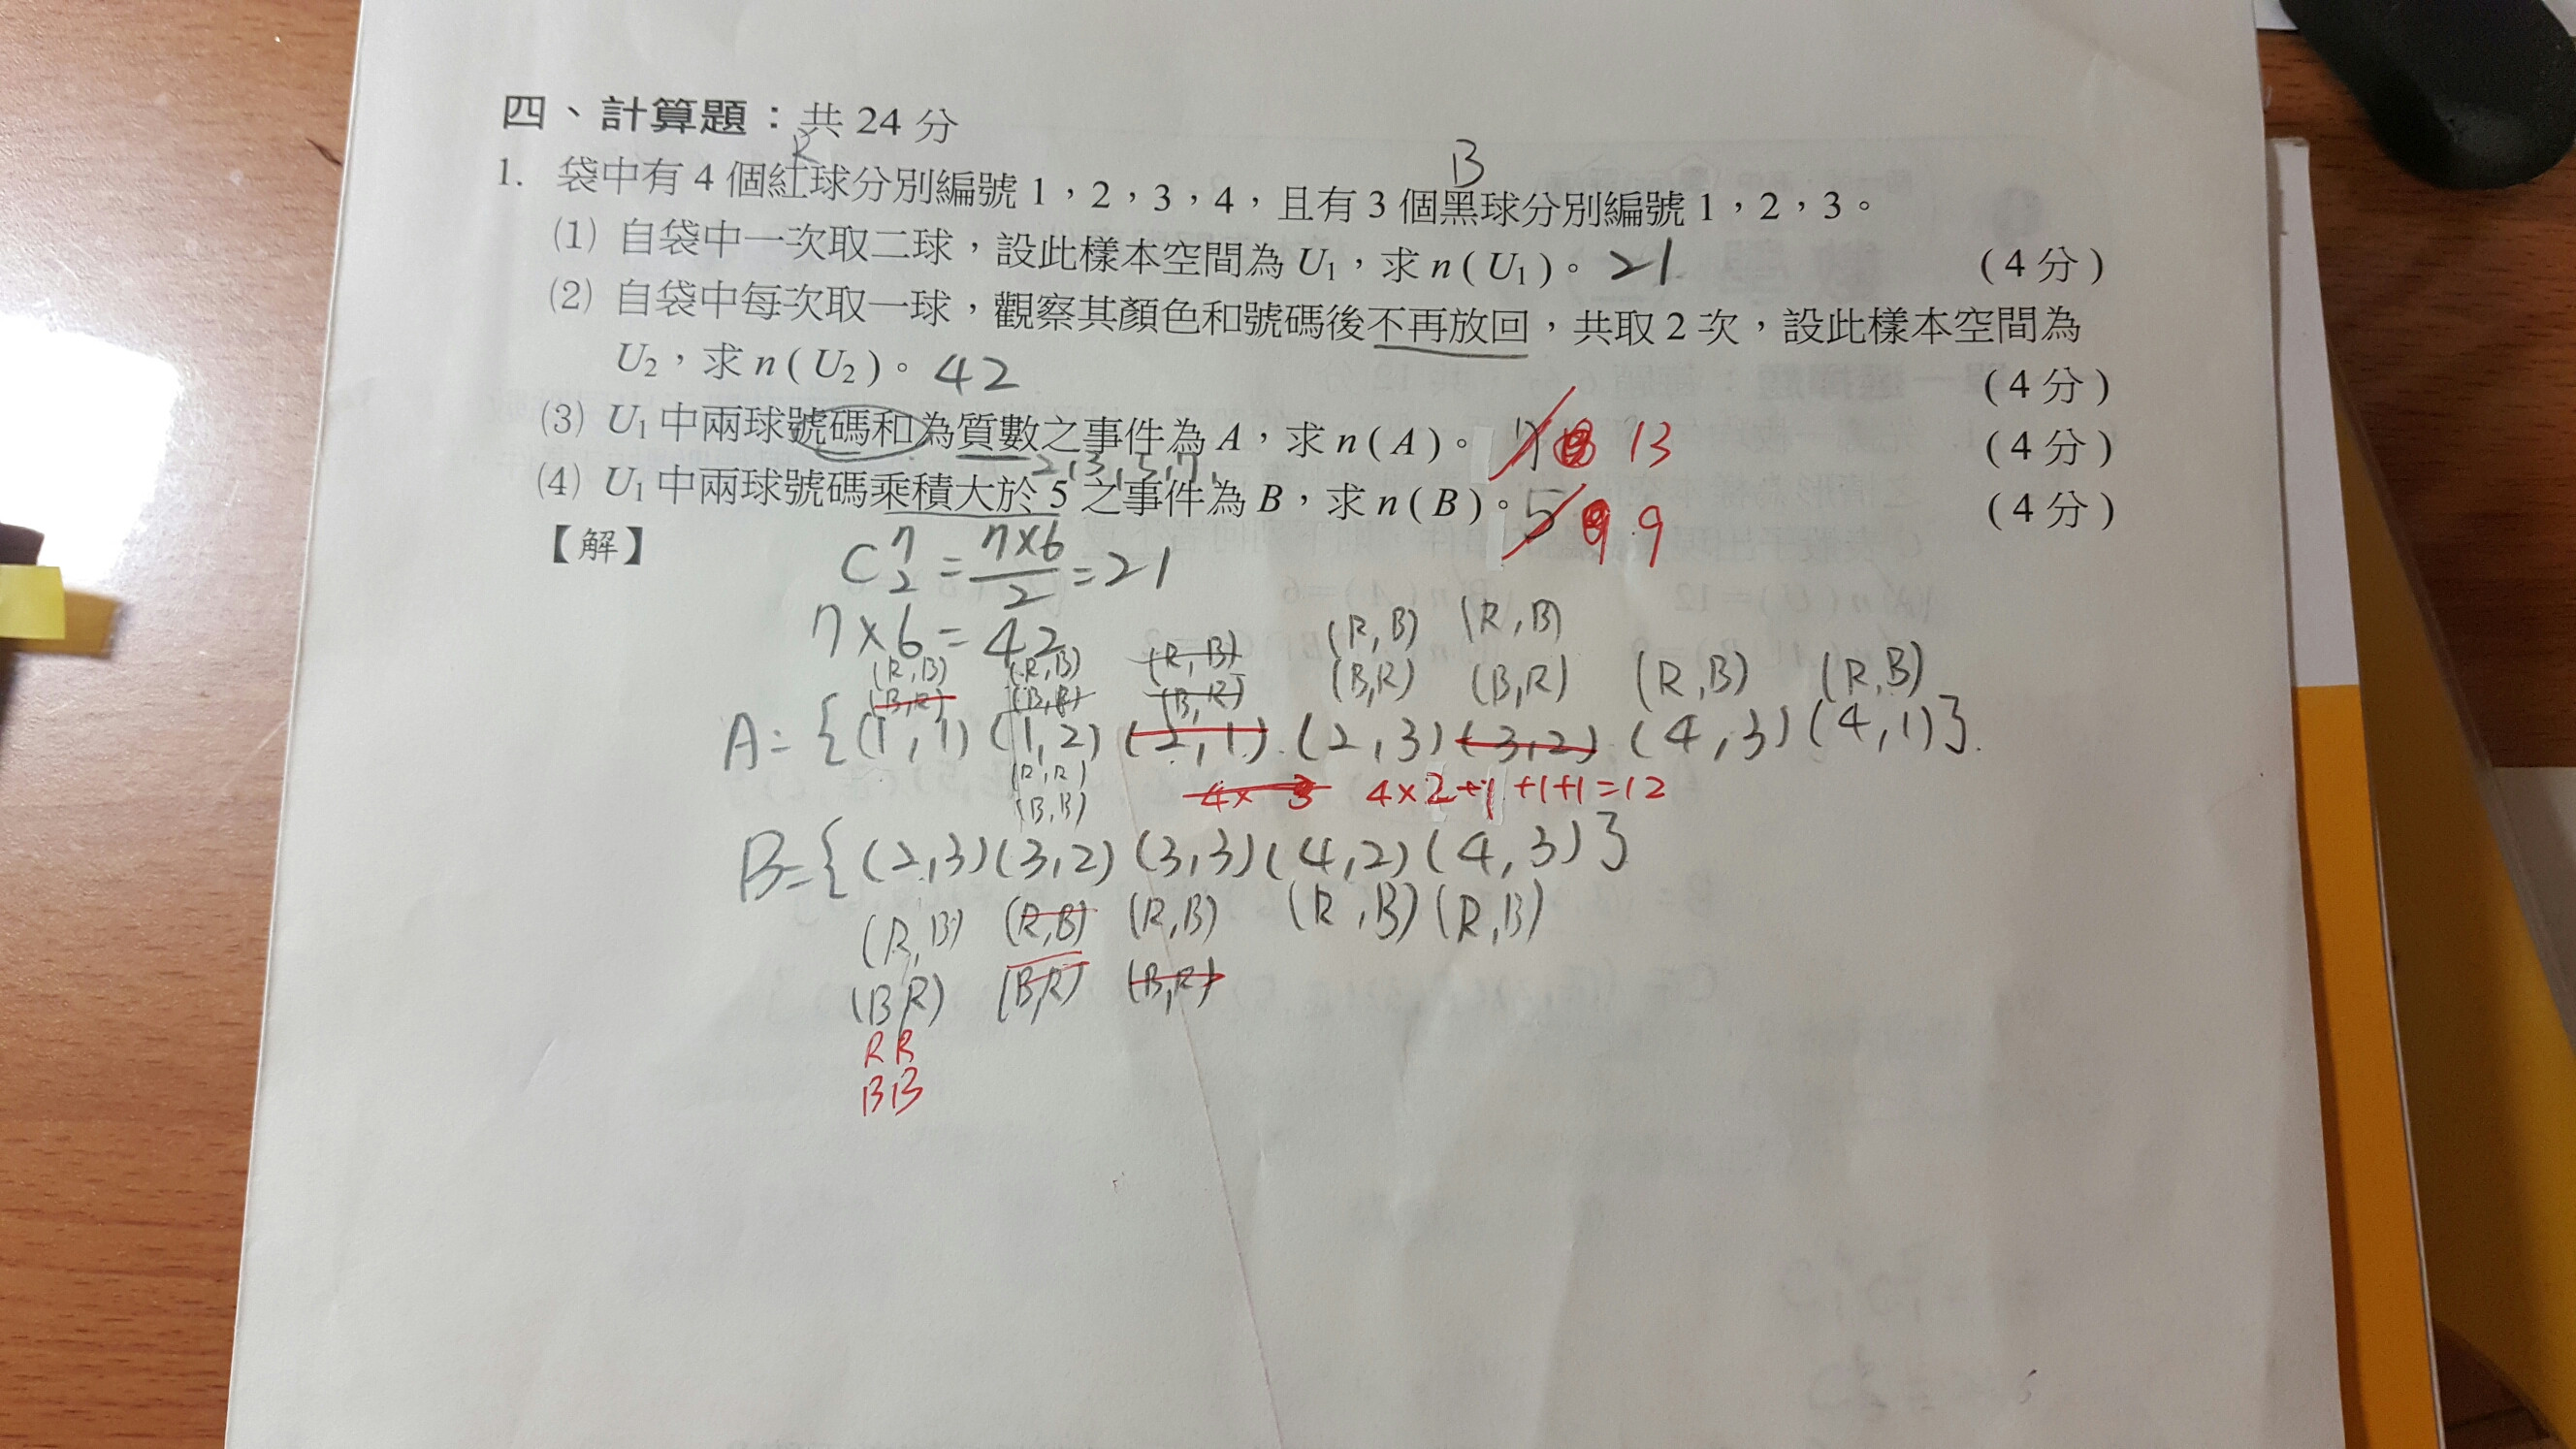 四、計算題：共 24 分
R
B
1. 袋中有 4 個紅球分別編號 1，2，3，4，且有 3 個黑球分別編號 1，2，3。
(1) 自袋中一次取二球，設此樣本空間為 U₁，求 n ( U₁ )。 21 ( 4 分 )
(2) 自袋中每次取一球，觀察其顏色和號碼後不再放回，共取 2 次，設此樣本空間為
U₂，求 n ( U₂ )。 42 ( 4 分 )
(3) U₁ 中兩球號碼和為質數之事件為 A，求 n ( A )。 7 13 ( 4 分 )
2,3,5,7,
(4) U₁ 中兩球號碼乘積大於 5 之事件為 B，求 n ( B )。 5 9 9 ( 4 分 )
【解】
C⁷₂ = 7×6/2 = 21
7×6 = 42
(R,B) (R,B) (R,B) (R,B) (R,B)
(B,R) (B,R) (B,R) (B,R) (B,R) (R,B) (R,B)
A= {(1,1) (1,2) (2,1) (2,3) (3,2) (4,3) (4,1)}.
(R,R)
(B,B)
4× 3 4×2+1+1+1=12
B={ (2,3) (3,2) (3,3) (4,2) (4,3) }
(R,B) (R,B) (R,B) (R,B) (R,B)
(B,R) (B,R) (B,R)
RR
BB